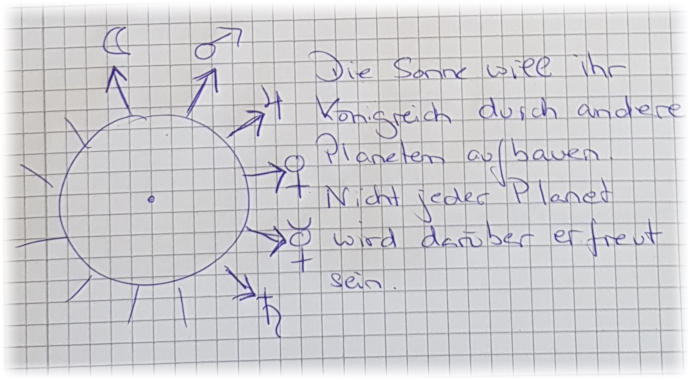 ☾
♂
♃
♀
☿
♄
Die Sonne will ihr
Königreich durch andere
Planeten aufbauen.
Nicht jeder Planet
wird darüber erfreut
sein.